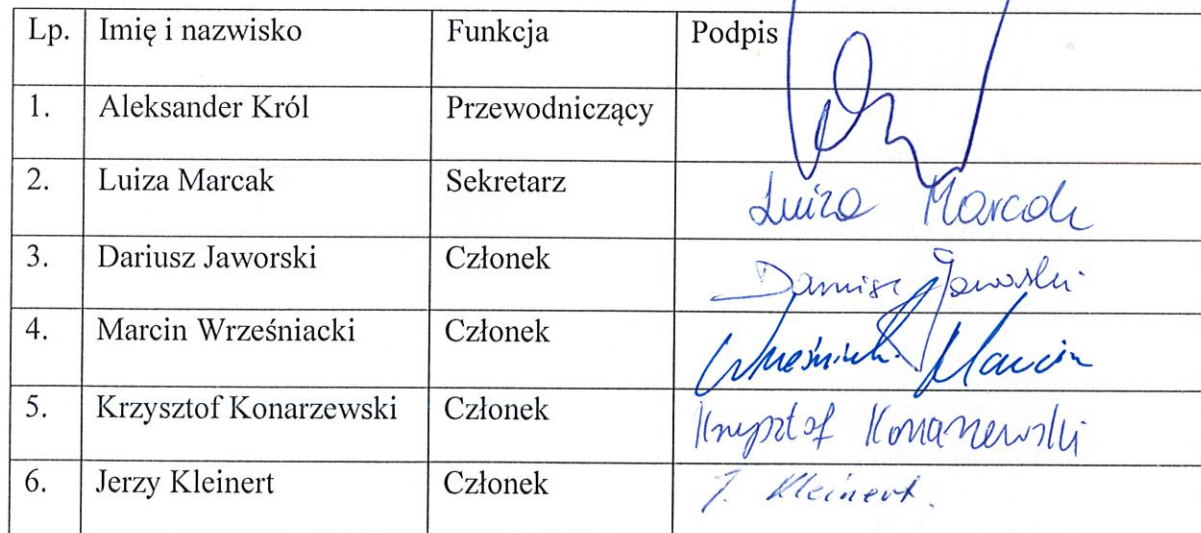 Lp. Imię i nazwisko Funkcja Podpis
1. Aleksander Król Przewodniczący
2. Luiza Marcak Sekretarz Luiza Marcak
3. Dariusz Jaworski Członek Dariusz Jaworski
4. Marcin Wrześniacki Członek Marcin
5. Krzysztof Konarzewski Członek Krzysztof Konarzewski
6. Jerzy Kleinert Członek J. Kleinert.